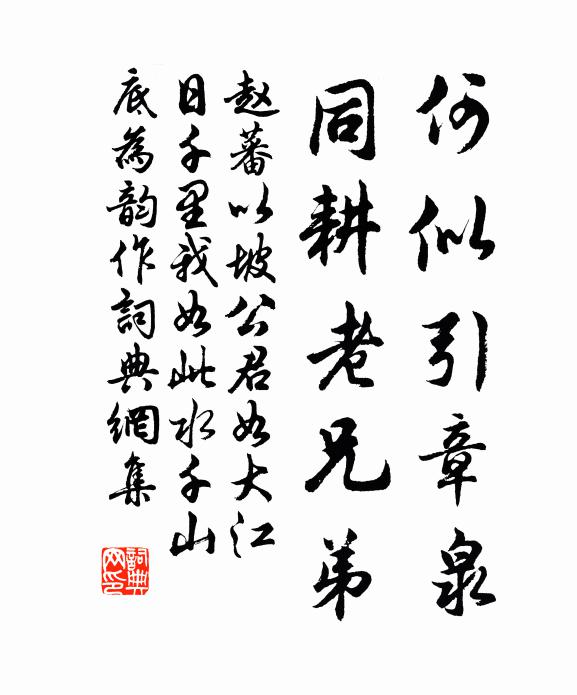 何似引章泉
同耕老兄弟
赵蕃以坡公君如大江
日千里我如此水千山
底為韵作詞典網集
詞典网印